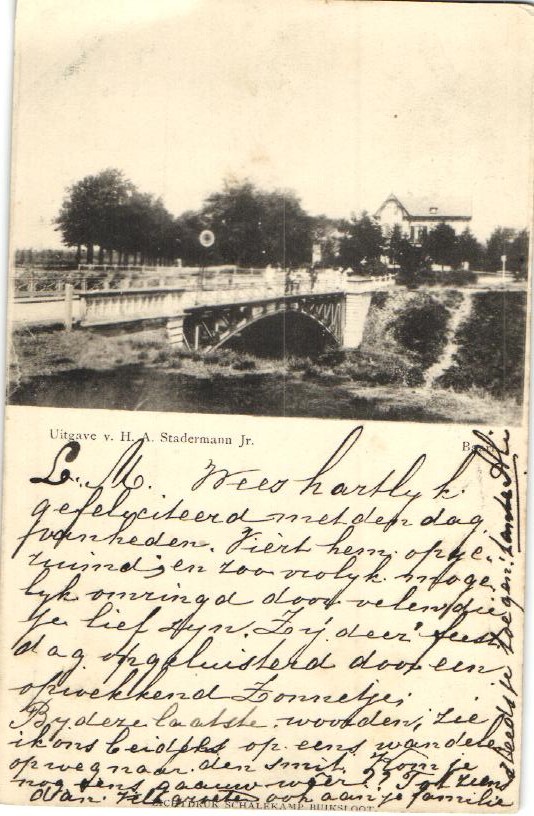 Uitgave v. H. A. Stadermann Jr.
L. M. Wees hartlyk
gefeliciteerd met den dag
van heden. Viert hem opge-
ruimd, en zoo vrolyk moge-
lyk omringd door velen die
je lief zyn. Zy deez' feest
dag opgeluisterd door een
opwekkend Zonnetje;
By deze laatste woorden, zie
ik ons beidjes op eens wandelen
op weg naar den smit. Kom je
nog eens gaauw weer?? Tot ziens
dan. ook aan je familie
LICHTDRUK SCHALEKAMP BUIKSLOOT